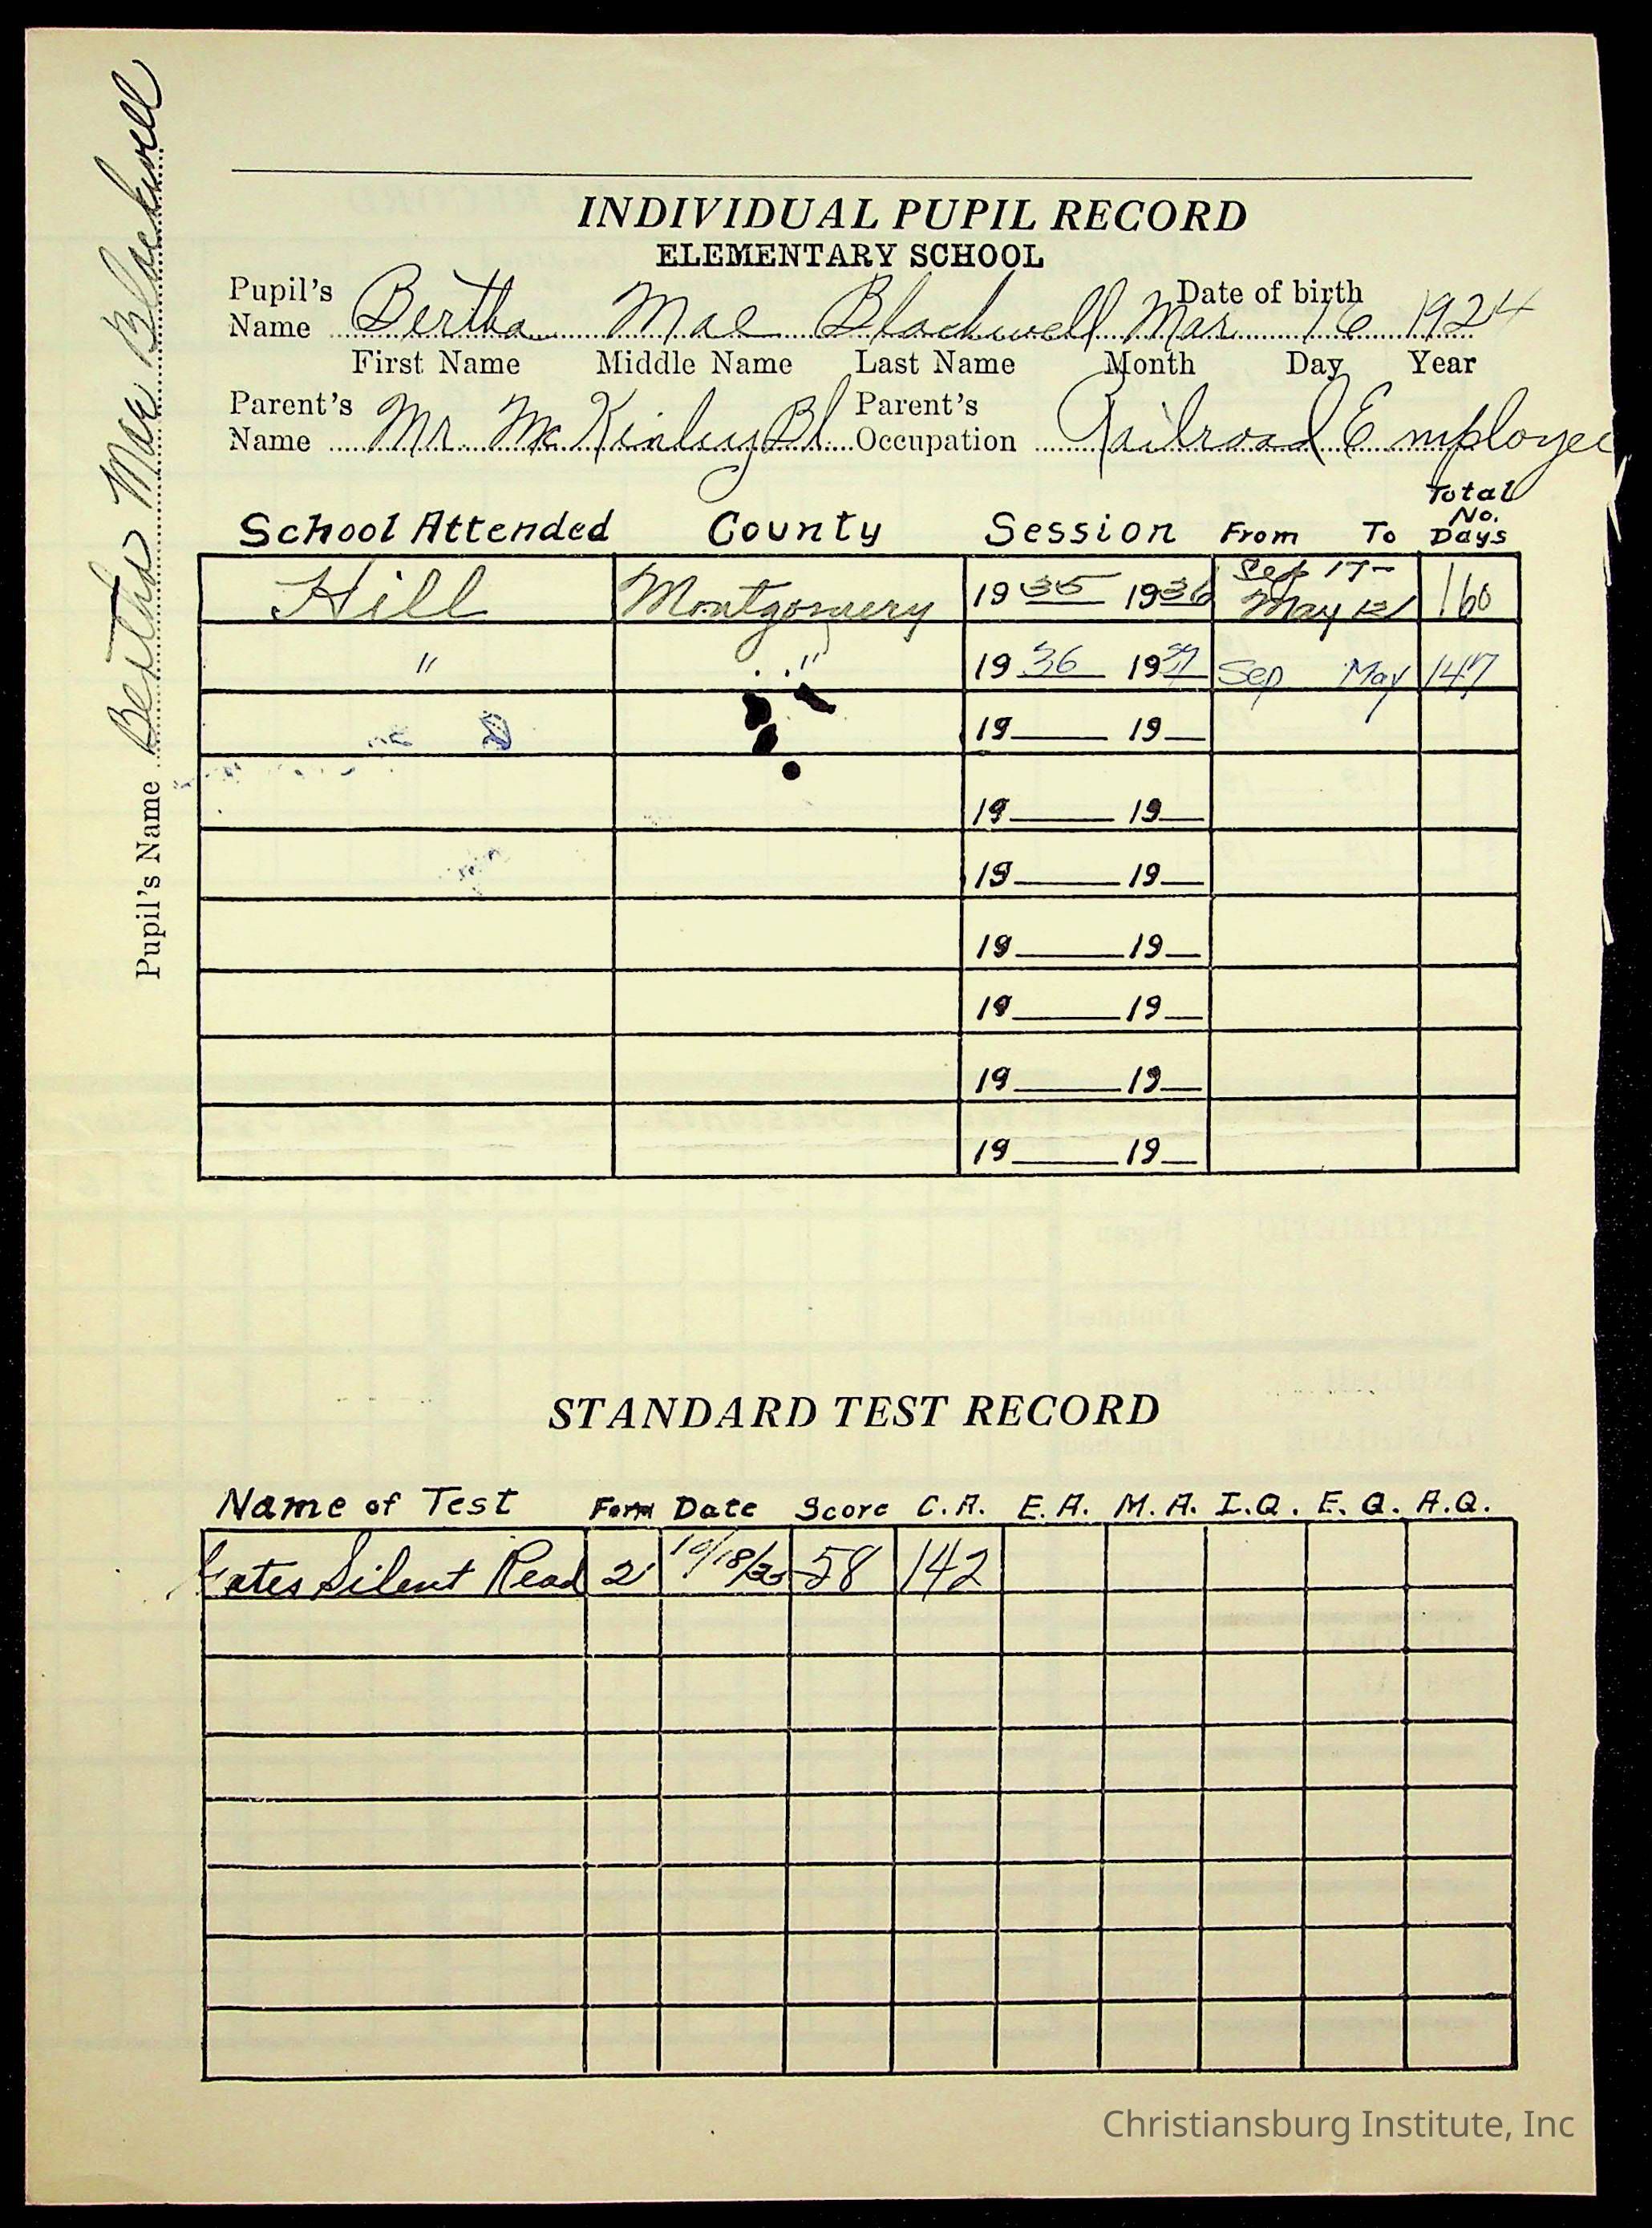 INDIVIDUAL PUPIL RECORD
ELEMENTARY SCHOOL
Pupil's Date of birth
Name Bertha Mae Blackwell Mar 16 1924
First Name Middle Name Last Name Month Day Year
Parent's Parent's
Name Mr. McKinley Bl. Occupation Railroad Employee
School Attended County Session From To Total No. Days
Hill Montgomery 1935 1936 Sep 17- May 160
" " 1936 1937 Sep May 147
19 19
19 19
19 19
19 19
19 19
19 19
19 19
Pupil's Name Bertha Mae Blackwell
STANDARD TEST RECORD
Name of Test Form Date Score C.A. E.A. M.A. I.Q. E.Q. A.Q.
Gates Silent Read 2 58 142
Christiansburg Institute, Inc